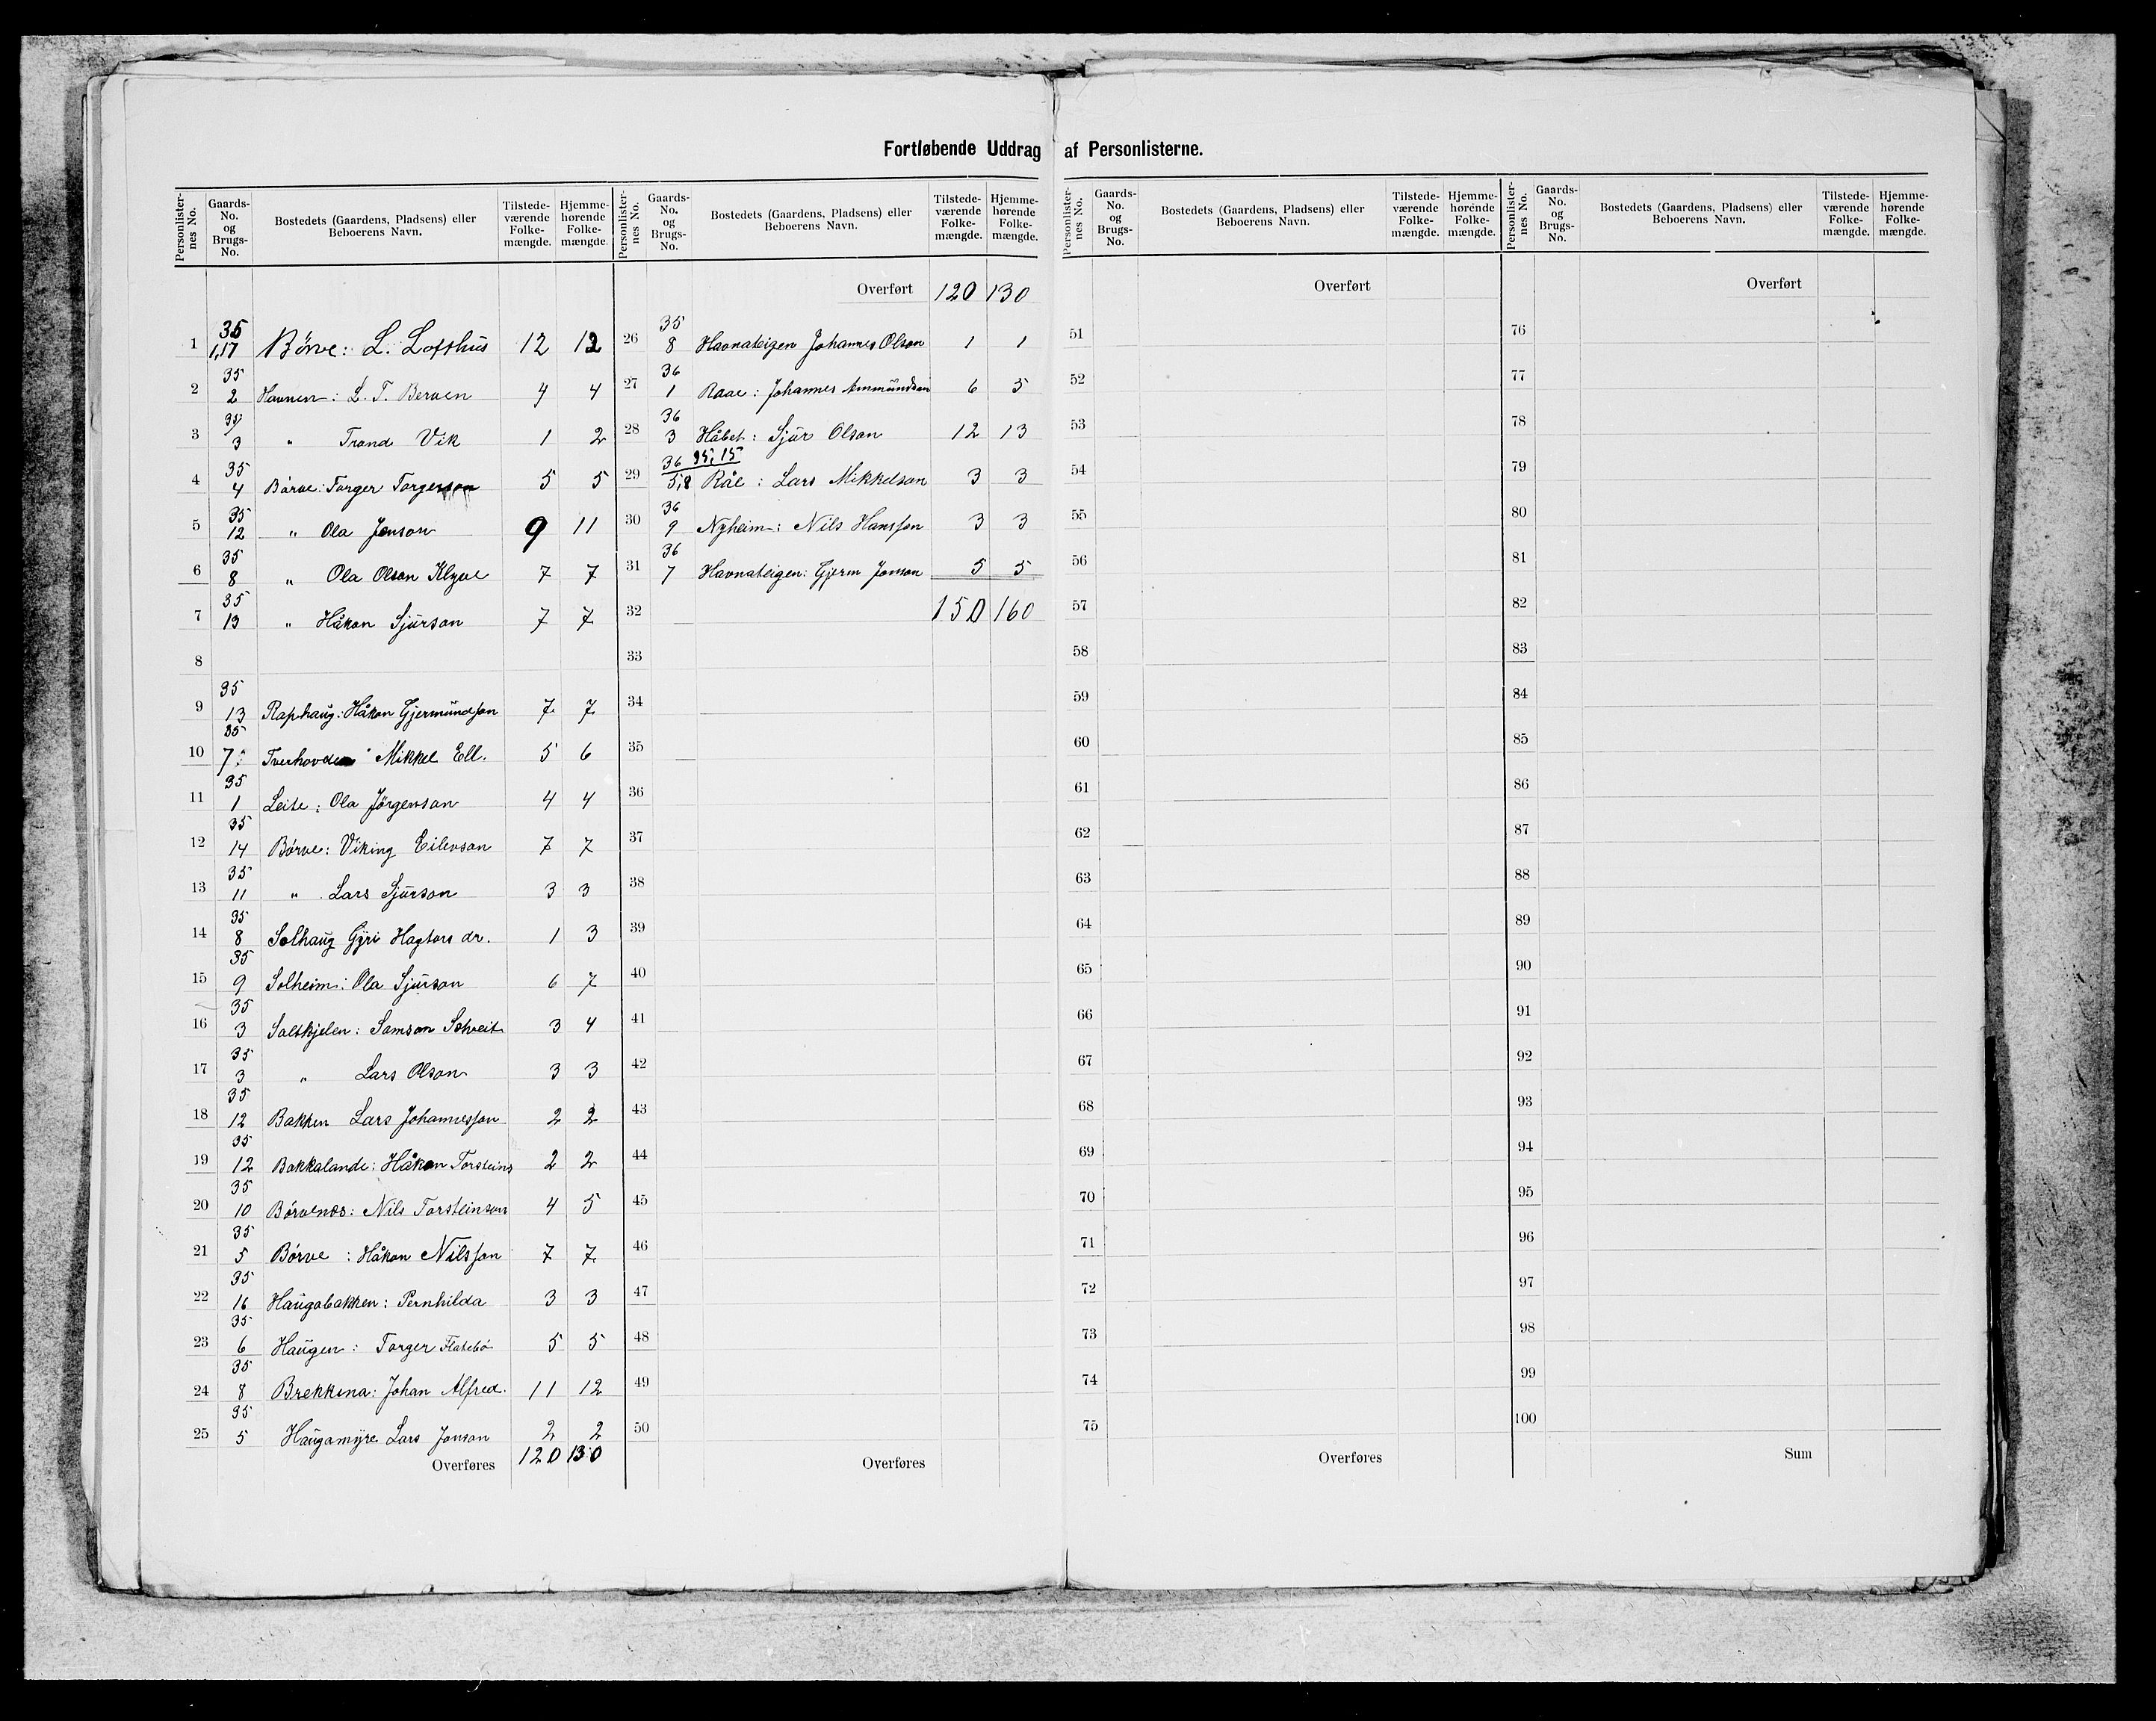 Fortløbende Uddrag af Personlisterne.
Personlister-nes No. | Gaards-No. og Brugs-No. | Bostedets (Gaardens, Pladsens) eller Beboerens Navn. | Tilstede-værende Folke-mængde. | Hjemme-hørende Folke-mængde.
1 | 35 1,17 | Børve: L. Lofthus | 12 | 12
2 | 35 2 | Havnen: L. T. Berven | 4 | 4
3 | 35 3 | " Trond Vik | 1 | 2
4 | 35 4 | Børve: Torger Torgerson | 5 | 5
5 | 35 12 | " Ola Jonson | 9 | 11
6 | 35 8 | " Ola Olson Klyve | 7 | 7
7 | 35 13 | " Håkon Sjurson | 7 | 7
8
9 | 35 13 | Raphaug: Håkon Gjermundson | 7 | 7
10 | 35 7 | Tverhovden Mikkel Ell. | 5 | 6
11 | 35 1 | Leite: Ola Jörgenson | 4 | 4
12 | 35 14 | Børve: Viking Eilevson | 7 | 7
13 | 35 11 | " Lars Sjurson | 3 | 3
14 | 35 8 | Solhaug Gyri Hagtors dr. | 1 | 3
15 | 35 9 | Solheim: Ola Sjurson | 6 | 7
16 | 35 3 | Saltkjelen: Samson Schveit | 3 | 4
17 | 35 3 | " Lars Olson | 3 | 3
18 | 35 12 | Bakken Lars Johannesson | 2 | 2
19 | 35 12 | Bakkalande: Håkon Torsteins | 2 | 2
20 | 35 10 | Børvenes: Nils Torsteinson | 4 | 5
21 | 35 5 | Børve: Håkon Nilsson | 7 | 7
22 | 35 16 | Haugabakken: Pernhilda | 3 | 3
23 | 35 6 | Haugen: Torger Flatebö | 5 | 5
24 | 35 8 | Brekkena: Johan Alfred. | 11 | 12
25 | 35 5 | Haugamyre Lars Jonson | 2 | 2
Overføres | 120 | 130
Personlister-nes No. | Gaards-No. og Brugs-No. | Bostedets (Gaardens, Pladsens) eller Beboerens Navn. | Tilstede-værende Folke-mængde. | Hjemme-hørende Folke-mængde.
Overført | 120 | 130
26 | 35 8 | Havnateigen Johannes Olson | 1 | 1
27 | 36 1 | Raae: Johannes Ammundson | 6 | 5
28 | 36 3 | Håbet: Sjur Olson | 12 | 13
29 | 36 35,15 5,8 | Råe: Lars Mikkelson | 3 | 3
30 | 36 9 | Nyheim: Nils Hansson | 3 | 3
31 | 36 7 | Havnateigen: Gjerm Jonson | 5 | 5
32 | 150 | 160
33
34
35
36
37
38
39
40
41
42
43
44
45
46
47
48
49
50
Overføres
Personlister-nes No. | Gaards-No. og Brugs-No. | Bostedets (Gaardens, Pladsens) eller Beboerens Navn. | Tilstede-værende Folke-mængde. | Hjemme-hørende Folke-mængde.
Overført
51
52
53
54
55
56
57
58
59
60
61
62
63
64
65
66
67
68
69
70
71
72
73
74
75
Overføres
Personlister-nes No. | Gaards-No. og Brugs-No. | Bostedets (Gaardens, Pladsens) eller Beboerens Navn. | Tilstede-værende Folke-mængde. | Hjemme-hørende Folke-mængde.
Overført
76
77
78
79
80
81
82
83
84
85
86
87
88
89
90
91
92
93
94
95
96
97
98
99
100
Sum